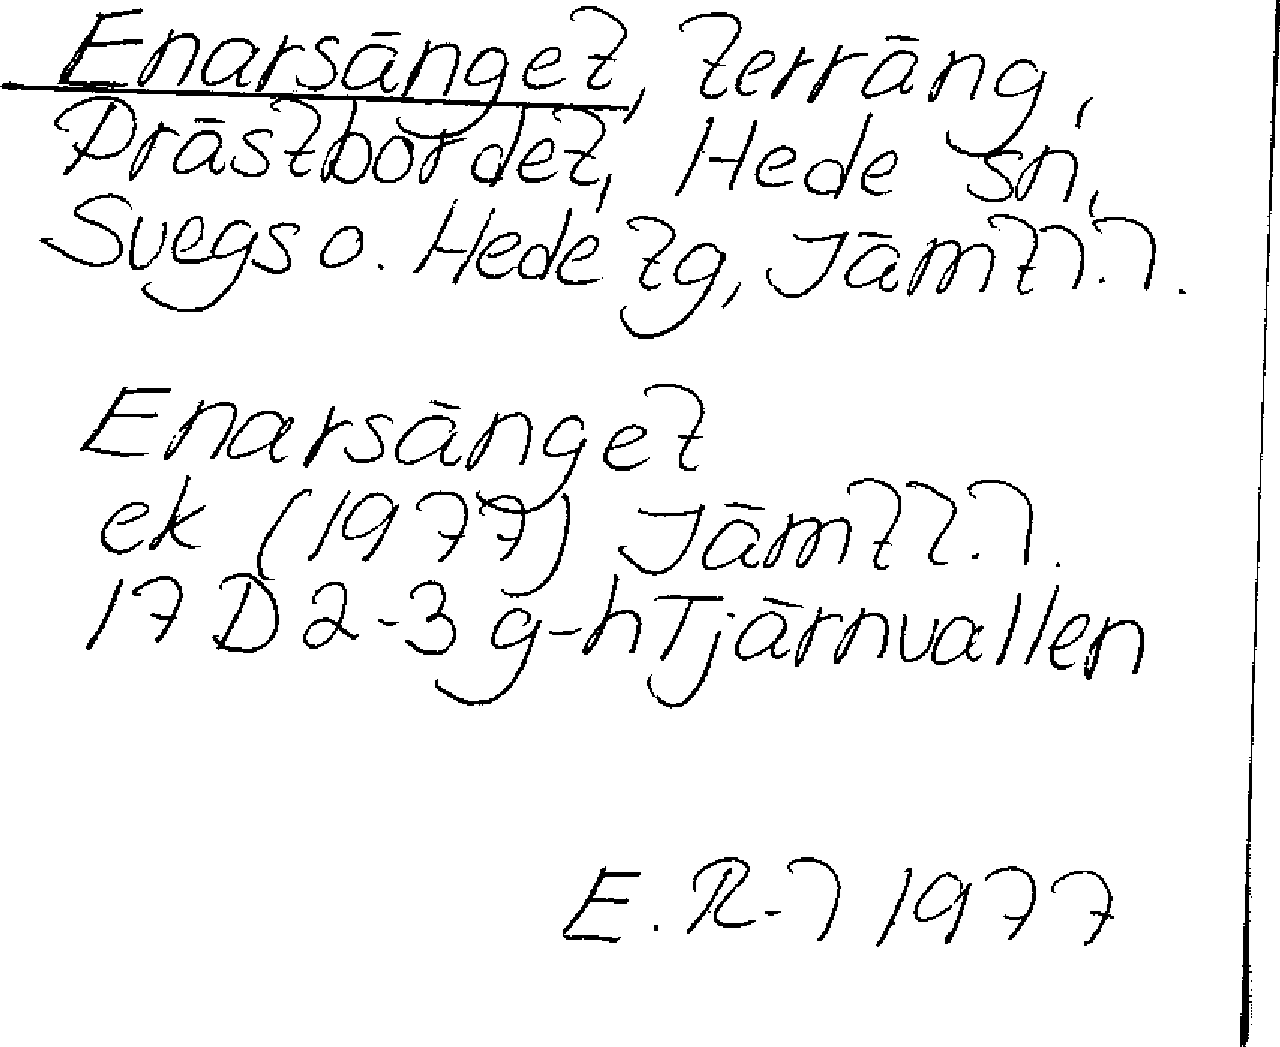 Enarsänget, terräng,
Prästbordet, Hede sn,
Svegs o. Hede tg, Jämtl.l.
Enarsänget
ek (1977) Jämtl.l.
17D 2-3 g-h Tjärnvallen
E. R-l 1977